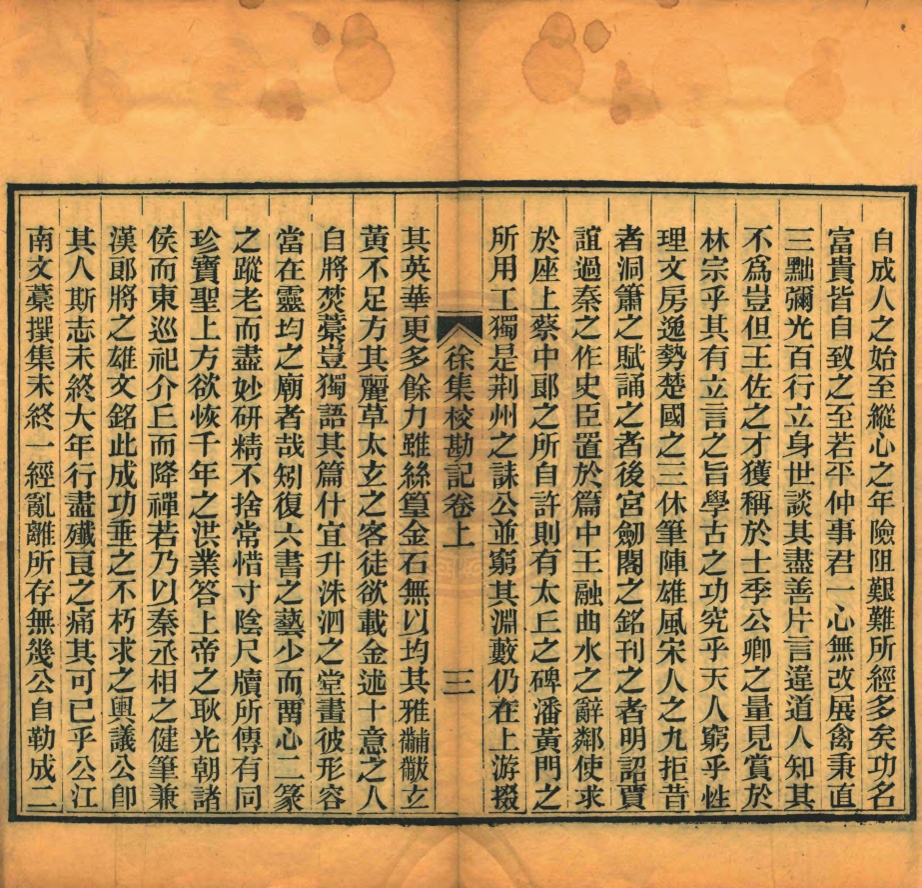 自成人之始至縱心之年險阻艱難所經多矣功名
富貴皆自致之至若平仲事君一心無改展禽秉直
三黜彌光百行立身世談其盡善片言違道人知其
不爲豈但王佐之才獲稱於士季公卿之量見賞於
林宗乎其有立言之旨學古之功究乎天人窮乎性
理文房逸勢楚國之三休筆陣雄風宋人之九拒昔
者洞簫之賦誦之者後宮劒閣之銘刊之者明詔賈
誼過秦之作史臣置於篇中王融曲水之辭鄰使求
於座上蔡中郎之所自許則有太丘之碑潘黃門之
所用工獨是荆州之誄公並窮其淵藪仍在上游掇
徐集校勘記卷上 三
其英華更多餘力雖絲篁金石無以均其雅黼黻玄
黃不足方其麗草太玄之客徒欲載金述十意之人
自將焚藁豈獨語其篇什宜升洙泗之堂畫彼形容
當在靈均之廟者哉矧復六書之藝少而留心二篆
之蹤老而盡妙研精不捨常惜寸陰尺牘所傳有同
珍寶聖上方欲恢千年之洪業答上帝之耿光朝諸
侯而東巡祀介丘而降禪若乃以秦丞相之健筆兼
漢郎將之雄文銘此成功垂之不朽求之輿議公卽
其人斯志未終大年行盡殲良之痛其可已乎公江
南文藁撰集未終一經亂離所存無幾公自勒成二